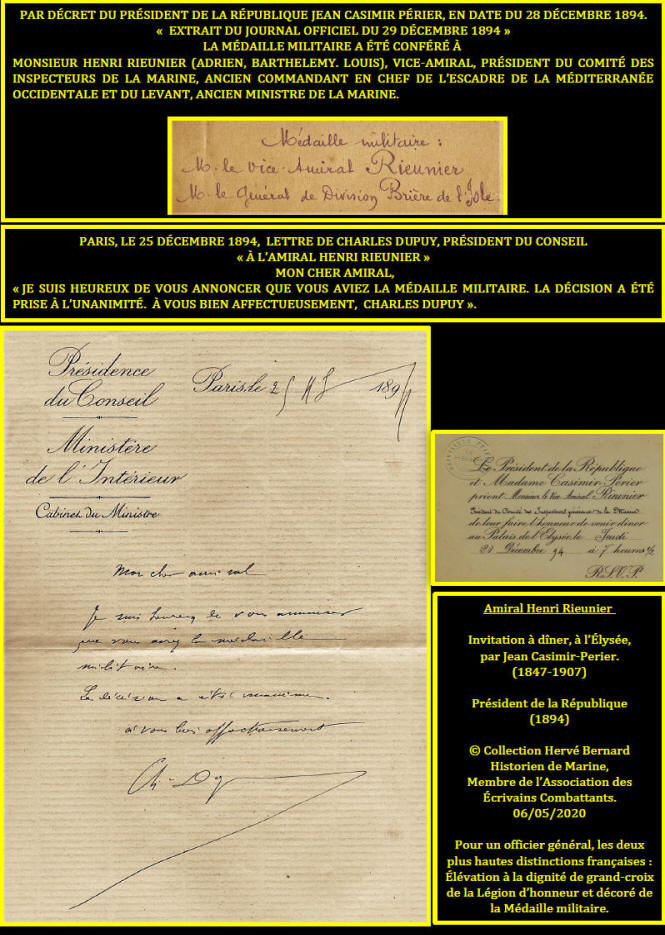 PAR DÉCRET DU PRÉSIDENT DE LA RÉPUBLIQUE JEAN CASIMIR PÉRIER, EN DATE DU 28 DÉCEMBRE 1894.
« EXTRAIT DU JOURNAL OFFICIEL DU 29 DÉCEMBRE 1894 »
LA MÉDAILLE MILITAIRE A ÉTÉ CONFÉRÉ À
MONSIEUR HENRI RIEUNIER (ADRIEN, BARTHELEMY. LOUIS), VICE-AMIRAL, PRÉSIDENT DU COMITÉ DES
INSPECTEURS DE LA MARINE, ANCIEN COMMANDANT EN CHEF DE L'ESCADRE DE LA MÉDITERRANÉE
OCCIDENTALE ET DU LEVANT, ANCIEN MINISTRE DE LA MARINE.
Médaille militaire :
M. le Vice-Amiral Rieunier
M. le Général de Division Brière de l'Isle.
PARIS, LE 25 DÉCEMBRE 1894, LETTRE DE CHARLES DUPUY, PRÉSIDENT DU CONSEIL
« À L'AMIRAL HENRI RIEUNIER »
MON CHER AMIRAL,
« JE SUIS HEUREUX DE VOUS ANNONCER QUE VOUS AVIEZ LA MÉDAILLE MILITAIRE. LA DÉCISION A ÉTÉ
PRISE À L'UNANIMITÉ. À VOUS BIEN AFFECTUEUSEMENT, CHARLES DUPUY ».
Présidence
du Conseil
Paris, le 25 189
Ministère
de l'Intérieur
Cabinet du Ministre
Mon cher amiral
Je suis heureux de vous annoncer
que vous avez la médaille
militaire.
La décision a été unanime.
à vous bien affectueusement
Ch. Dupuy
Le Président de la République
et Madame Casimir-Perier
prient Monsieur le Vice Amiral Rieunier
Président du Comité des Inspecteurs généraux de la Marine
de leur faire l'honneur de venir dîner
au Palais de l'Elysée le Jeudi
Décembre 94 à 7 heures ½
R.S.V.P.
Amiral Henri Rieunier
Invitation à dîner, à l'Élysée,
par Jean Casimir-Perier.
(1847-1907)
Président de la République
(1894)
© Collection Hervé Bernard
Historien de Marine,
Membre de l'Association des
Écrivains Combattants.
06/05/2020
Pour un officier général, les deux
plus hautes distinctions françaises :
Élévation à la dignité de grand-croix
de la Légion d'honneur et décoré de
la Médaille militaire.